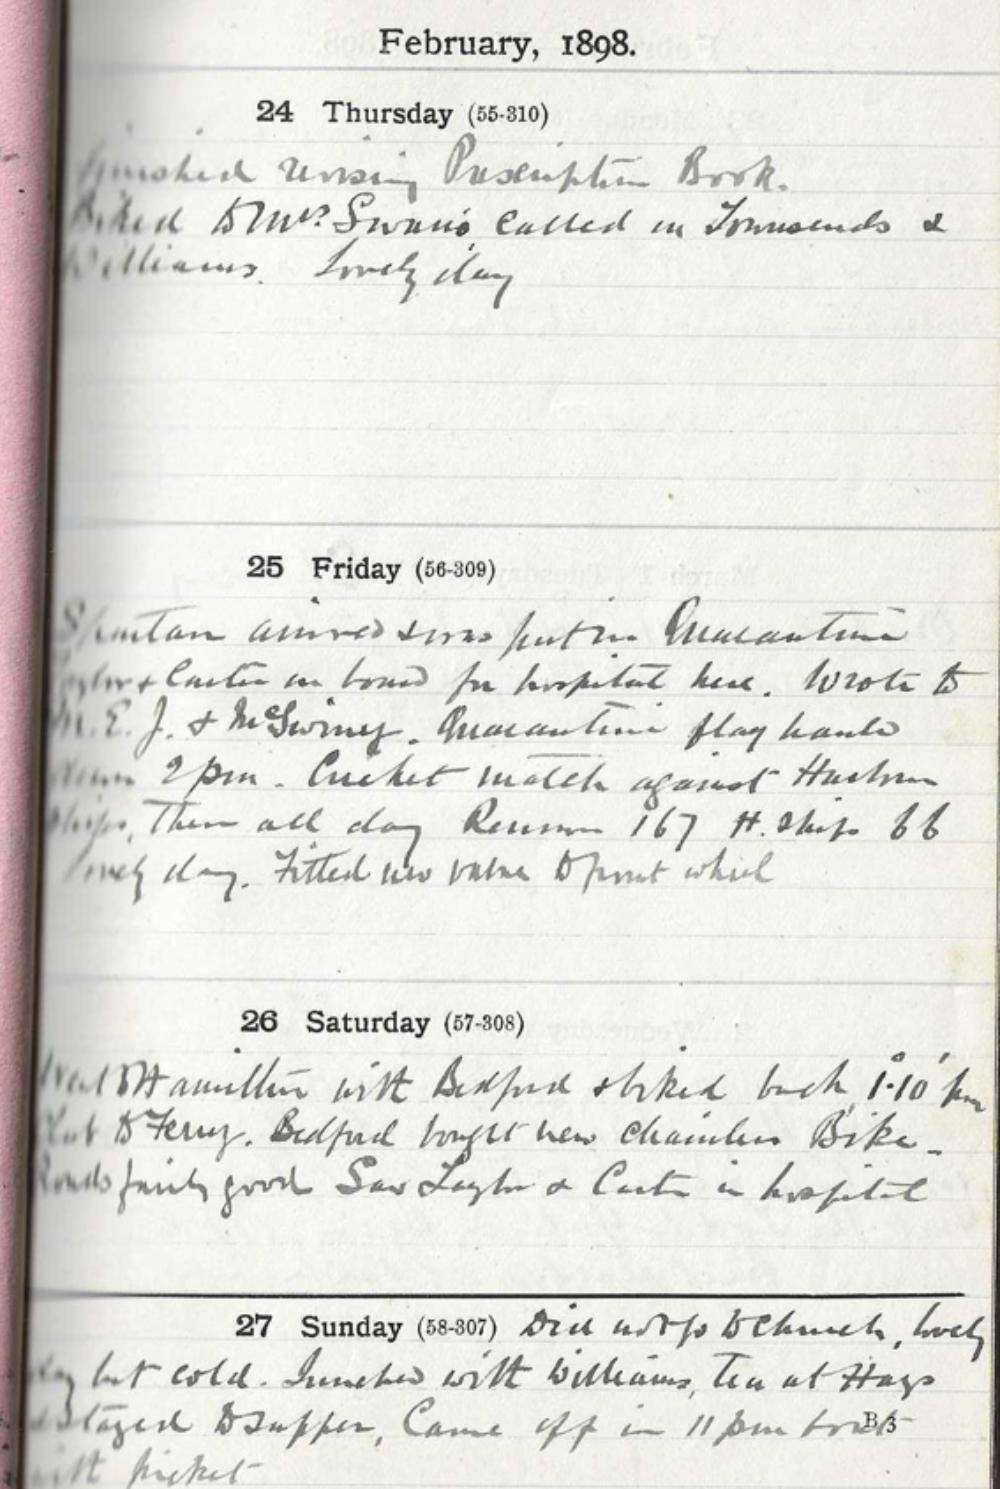 February, 1898.
24 Thursday (55-310)
Finished revising Prescription Book.
Biked to Mrs. Swan's called in Townsends &
Williams. Lovely day
25 Friday (56-309)
Spartan arrived & was put in Quarantine
Taylor & Carter on board for hospital here. Wrote to
M. E. J. & McSwiney. Quarantine flag hauled
down 2 pm. Cricket match against Harbour
Ships, There all day Renown 167 H. Ships 66
lovely day. Fitted new valve to front wheel
26 Saturday (57-308)
Went to Hamilton with Bedford & biked back 1.10 pm
to Ferry. Bedford bought new chainless Bike.
Roads fairly good Saw Taylor & Carter in hospital
27 Sunday (58-307) Did not go to Church, lovely
day but cold. Lunched with Williams, Tea at Hays
& stayed to supper, Came off in 11 pm boat
B 3
with picket